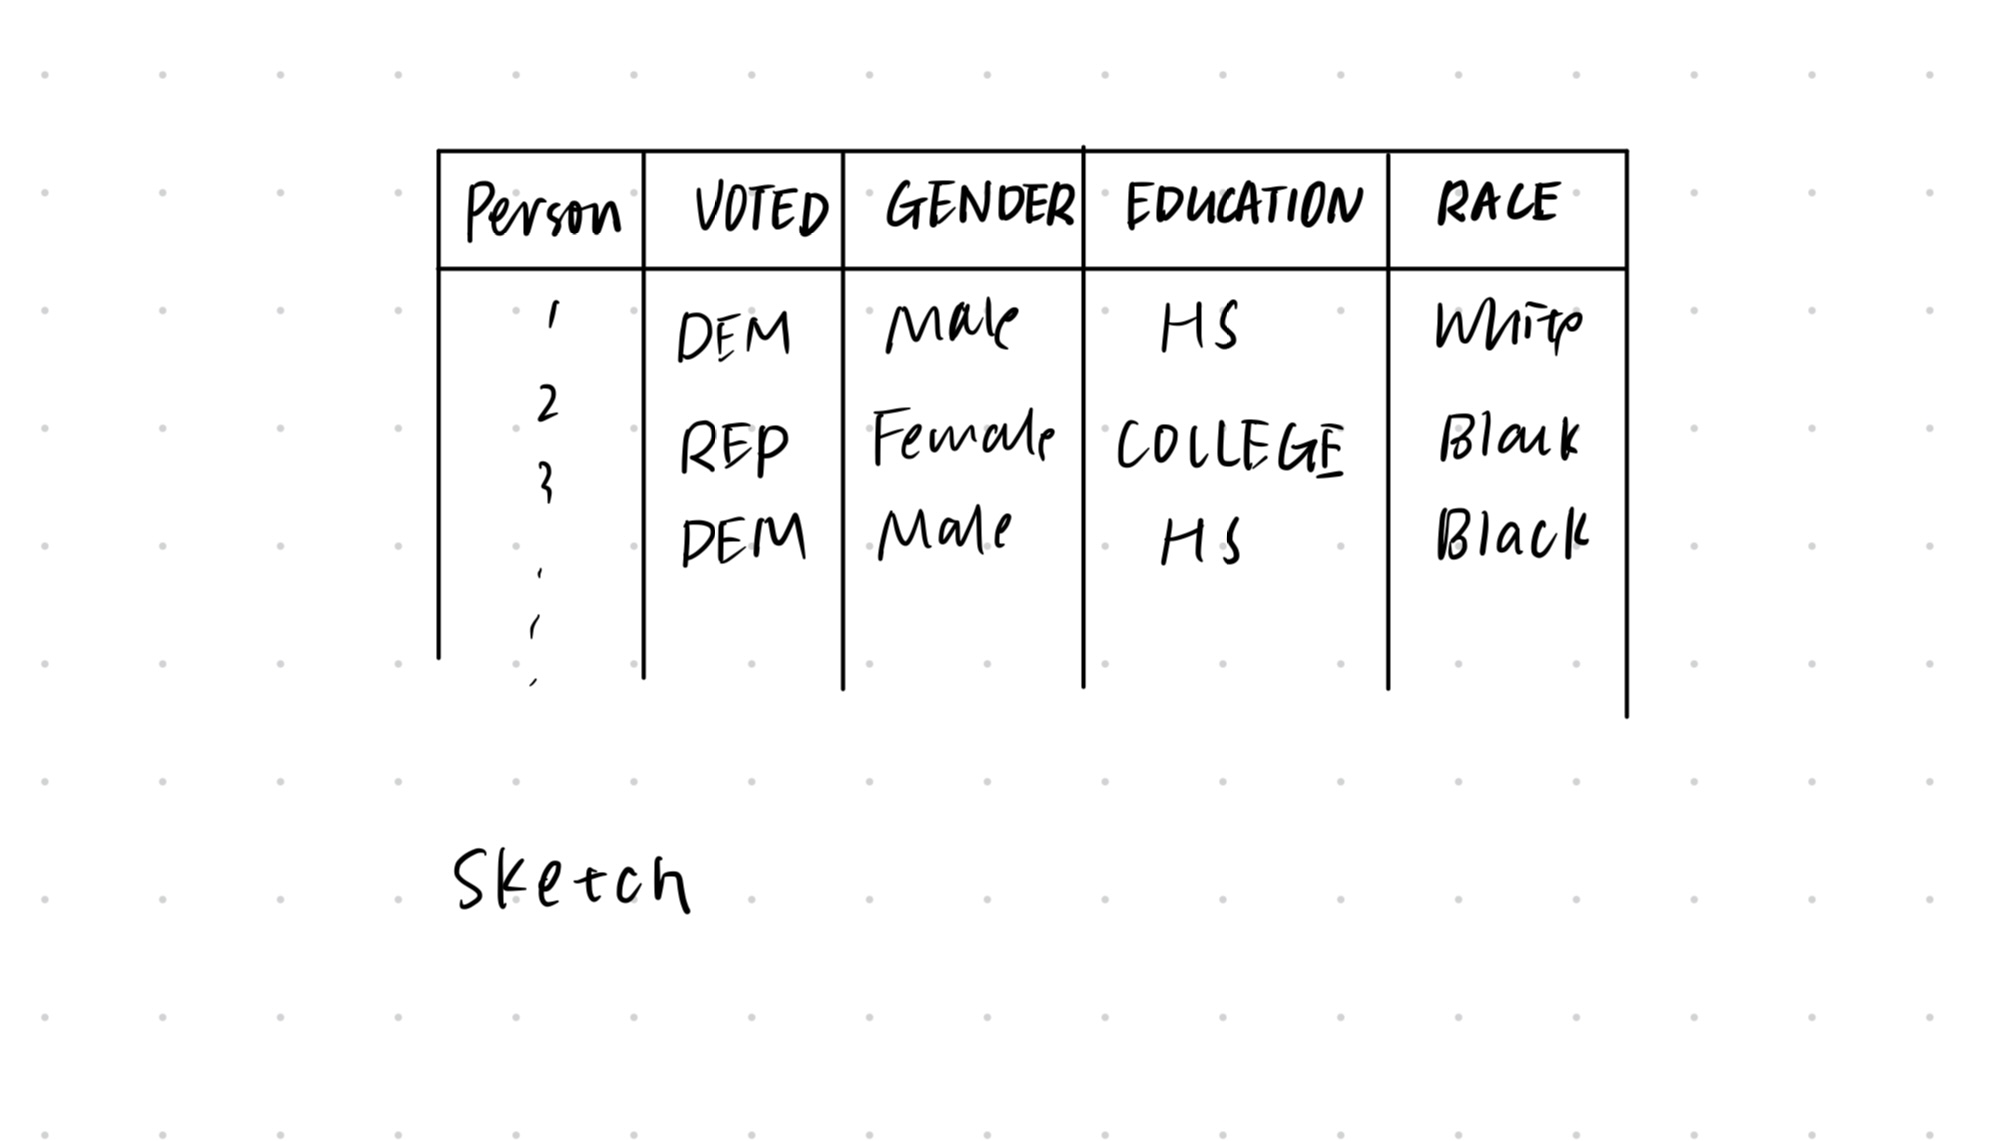 Person VOTED GENDER EDUCATION RACE
1 DEM Male HS White
2 REP Female COLLEGE Black
3 DEM Male HS Black
Sketch